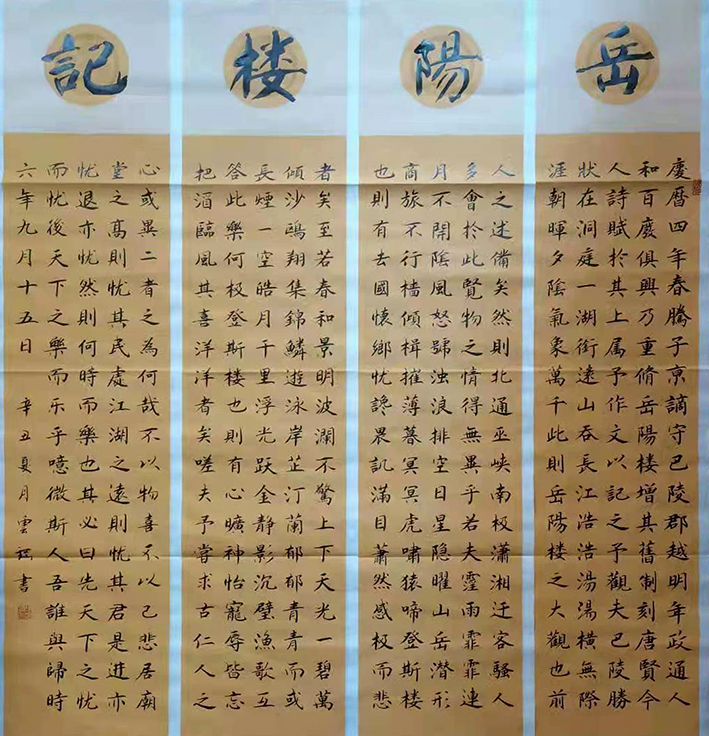 岳陽楼記
慶暦四年春騰子京謫守巴陵郡越明年政通人
和百廢俱興乃重脩岳陽楼增其舊制刻唐賢今
人詩賦於其上属予作文以記之予觀夫巴陵勝
狀在洞庭一湖銜遠山吞長江浩浩湯湯橫無際
涯朝暉夕陰氣象萬千此則岳陽楼之大觀也前
人之述備矣然則北通巫峡南极瀟湘迁客騷人
多會於此賢物之情得無異乎若夫霪雨霏霏連
月不開陰風怒號浊浪排空日星隐曜山岳潜形
商旅不行檣傾楫摧薄暮冥冥虎嘯猿啼登斯楼
也則有去國懷鄉忧讒畏譏滿目蕭然感极而悲
者矣至若春和景明波瀾不驚上下天光一碧萬
傾沙鷗翔集錦鱗遊泳岸芷汀蘭郁郁青青而或
長煙一空皓月千里浮光跃金静影沉璧漁歌互
答此樂何极登斯楼也則有心曠神怡寵辱皆忘
把酒臨風其喜洋洋者矣嗟夫予嘗求古仁人之
心或異二者之為何哉不以物喜不以己悲居廟
堂之高則忧其民處江湖之遠則忧其君是进亦
忧退亦忧然則何時而樂也其必曰先天下之忧
而忧後天下之樂而乐乎噫微斯人吾誰與歸時
六年九月十五日 辛丑夏月雲書